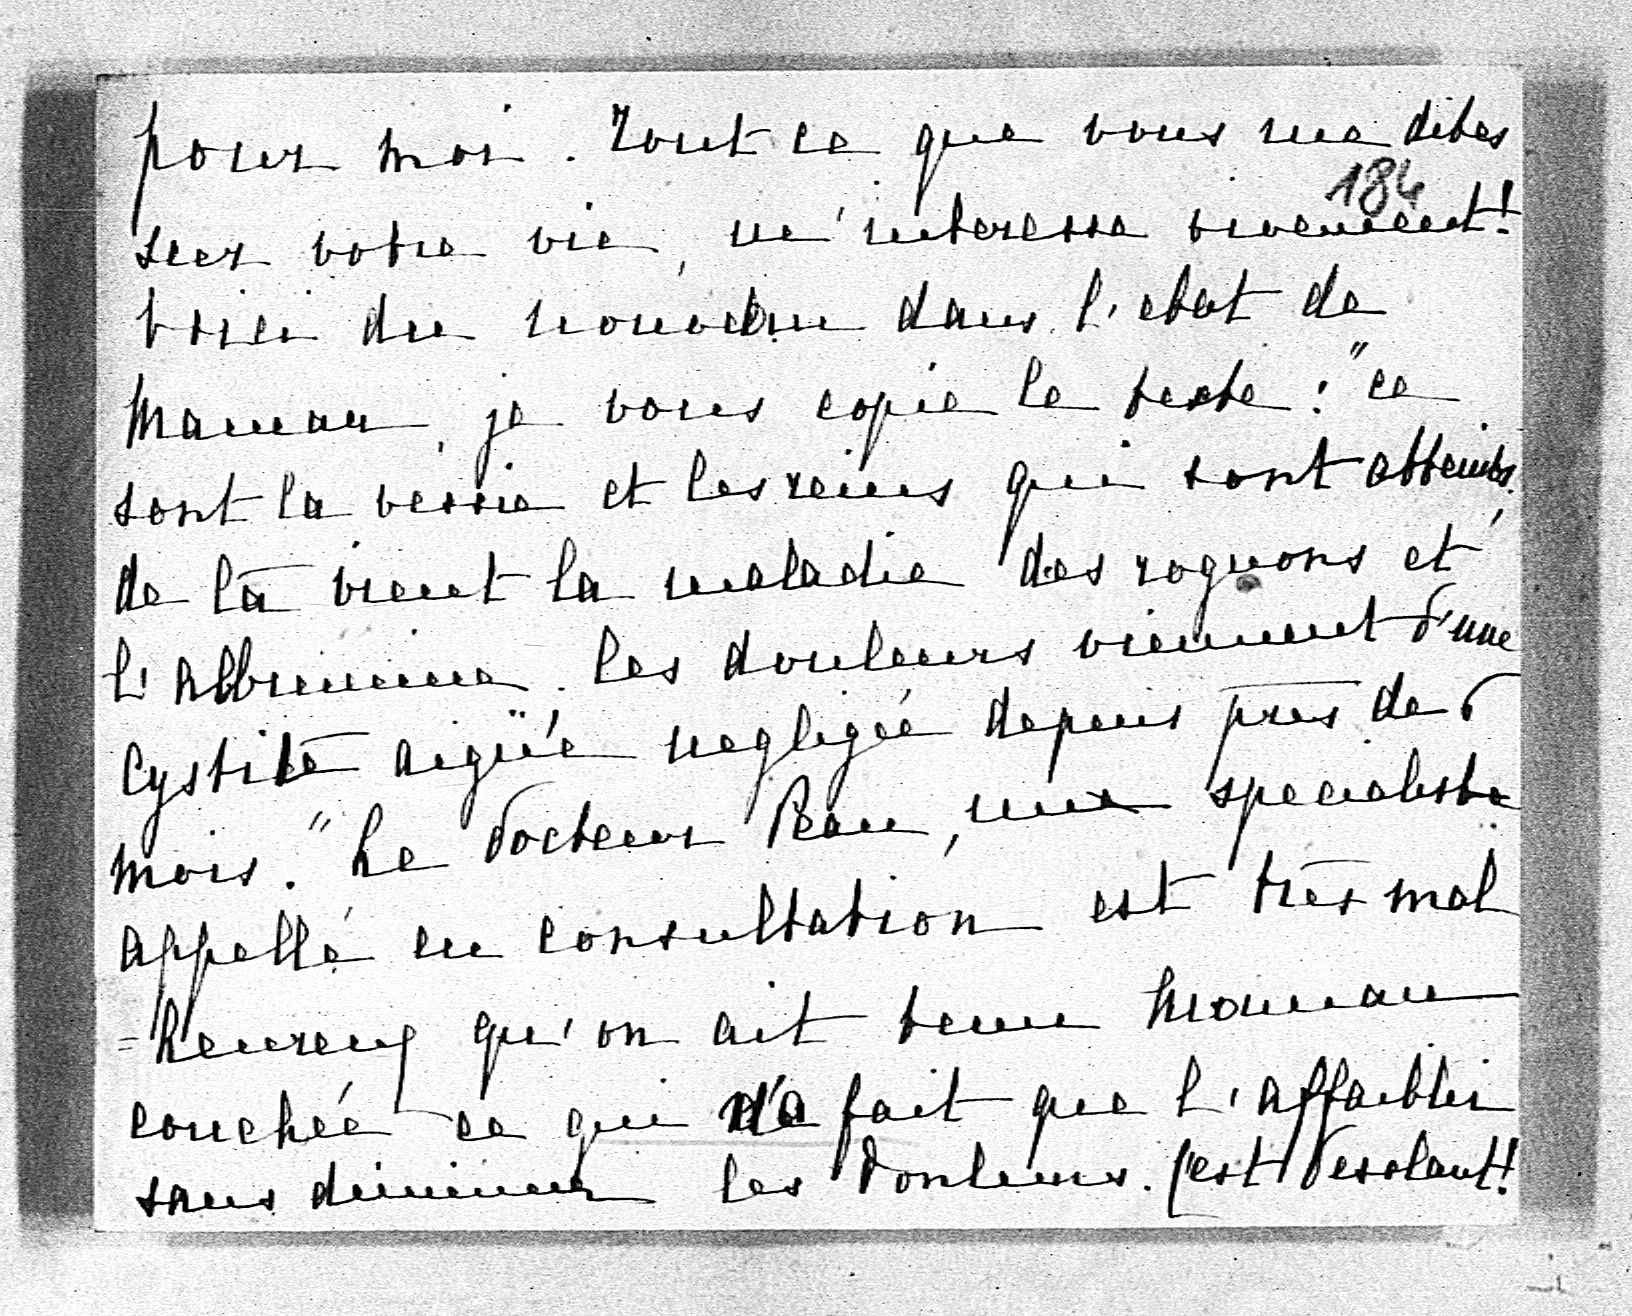 pour moi. Tout ce que vous me dites
184
sur votre vie, m'interesse vivement!
Voici du nouveau dans l'etat de
Maman, je vous copie le texte: "ce
sont la vessie et les reins qui sont atteints,
de là vient la maladie des rognons et
l'Albumine. les douleurs viennent d'une
Cystite aigüe negligée depuis près de 6
mois." Le docteur Pean, un specialiste
appellé en consultation est très mal
=heureux qu'on ait tenu Maman
couchée ce qui n'a fait que l'affaiblir
sans diminuer les douleurs. C'est desolant!